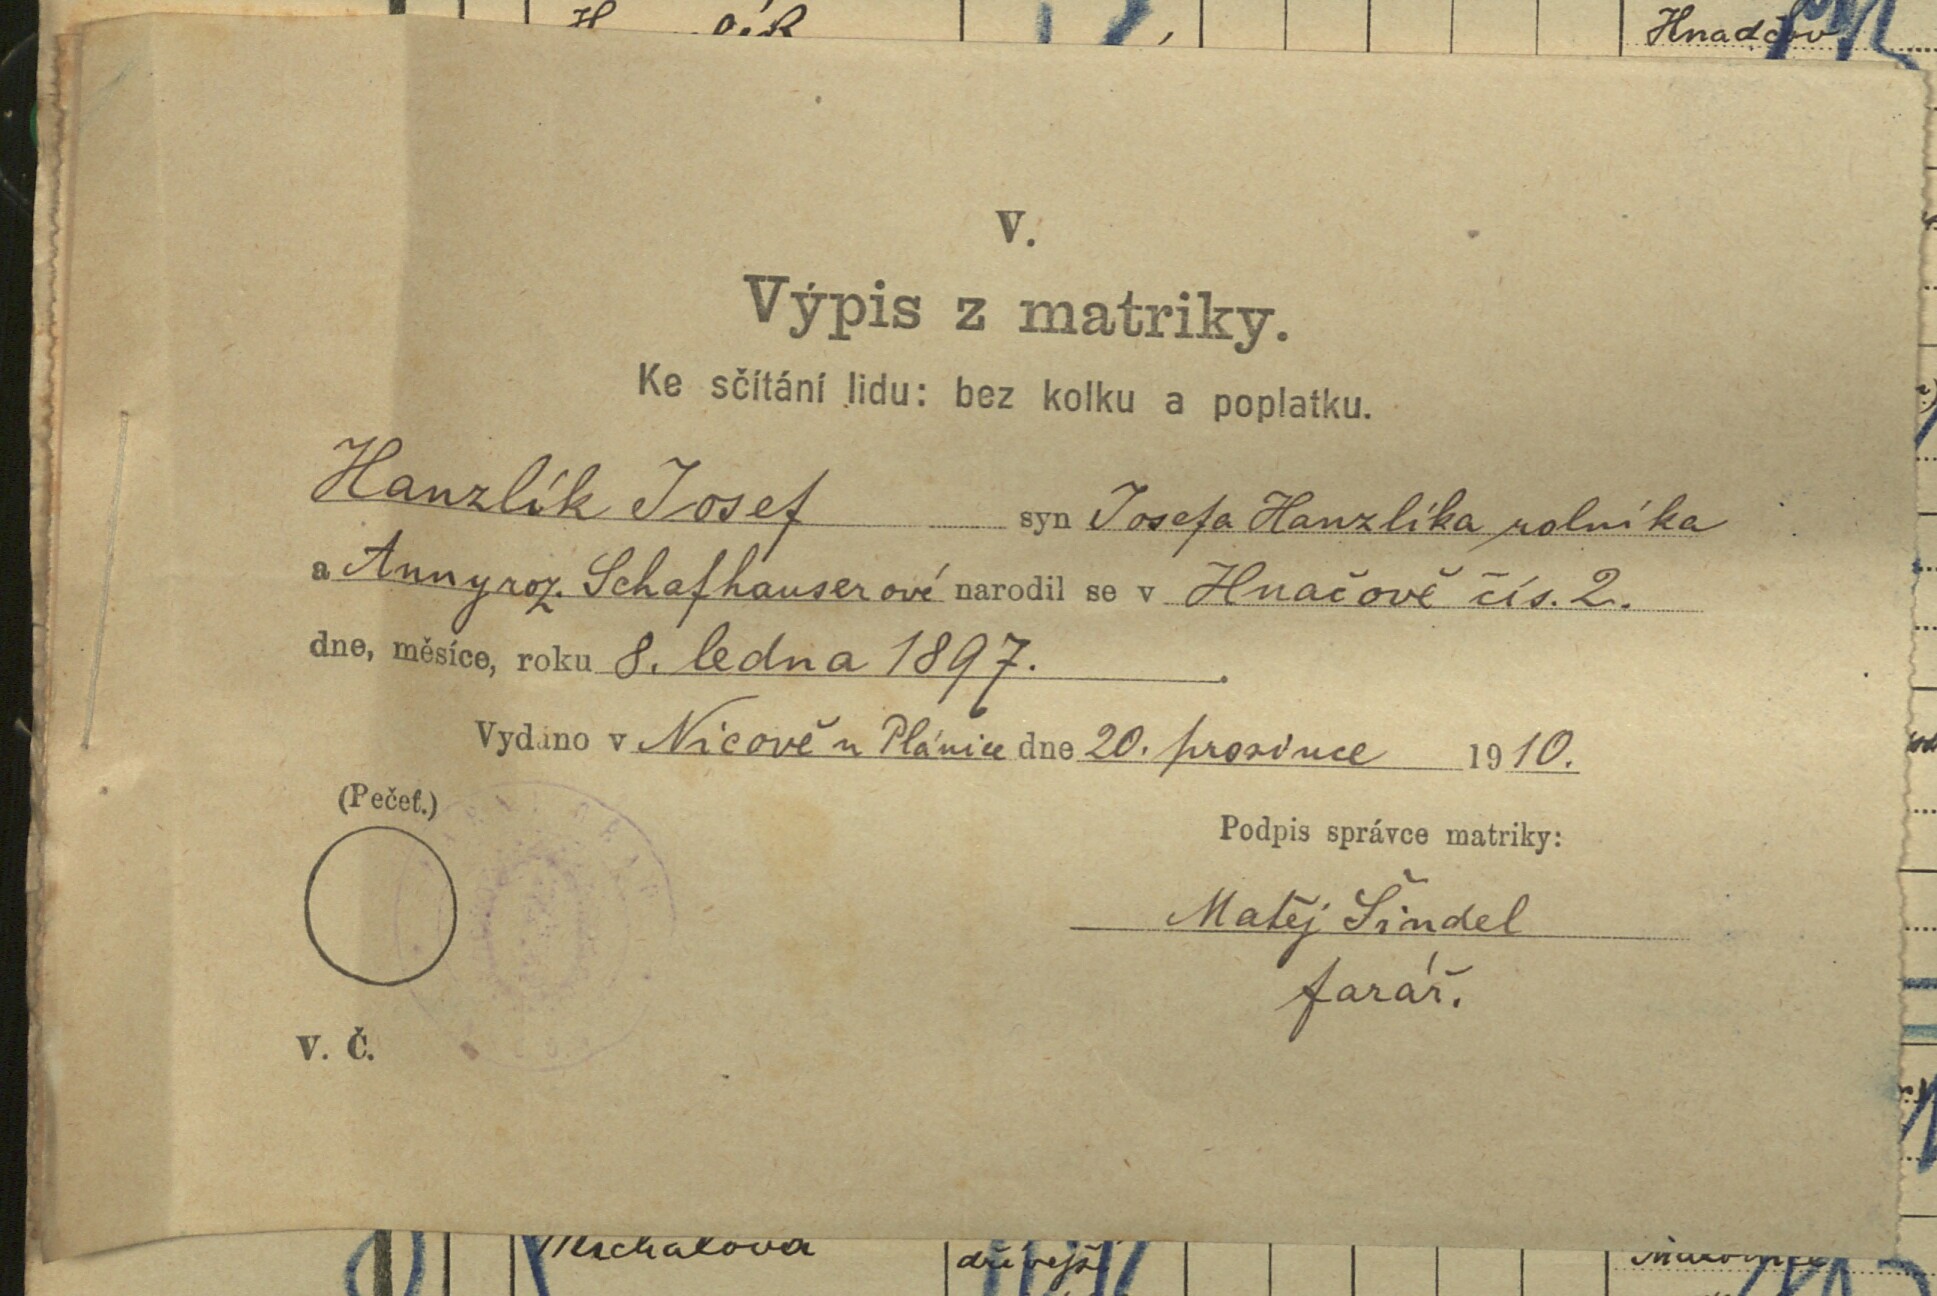 Hnadčov
V.
Výpis z matriky.
Ke sčítání lidu: bez kolku a poplatku.
Hanzlík Josef syn Josefa Hanzlíka rolníka
a Anny roz. Schafhauserové narodil se v Hnačově čís. 2.
dne, měsíce, roku 8. ledna 1897.
Vydáno v Nicově u Plánice dne 20. prosince 1910.
(Pečeť.)
Podpis správce matriky:
Matěj Šindel
farář.
V. Č.
Michalova
dřívější